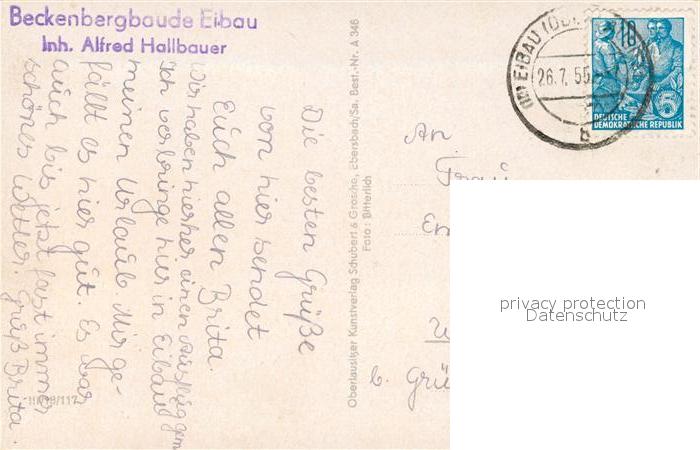 Beckenbergbaude Eibau
Inh. Alfred Hallbauer
Die besten Grüße
von hier sendet
Euch allen Brita.
Wir haben hierher einen Ausflug gem
Ich verbringe hier in Eibau
meinen Urlaub. Mir ge-
fällt es hier gut. Es war
auch bis jetzt fast immer
schönes Wetter. Gruß Brita.
III/18/117
Oberlausitzer Kunstverlag Schubert & Grosche, Ebersbach/Sa. Best.-Nr. A 346
Foto: Bitterlich
EIBAU
26.7.55
b
10
5
DEUTSCHE
DEMOKRATISCHE REPUBLIK
An
Frau
b. Grü
privacy protection
Datenschutz